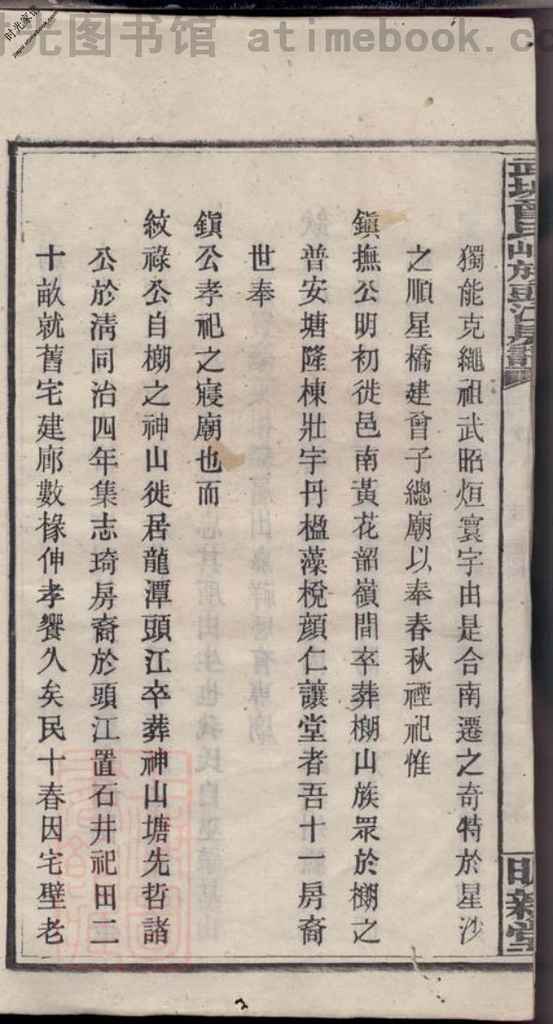 时光图书馆 atimebook.com
獨能克繩祖武昭烜寰宇由是合南遷之奇特於星沙
之順星橋建曾子總廟以奉春秋禋祀惟
鎭撫公明初徙邑南黃花韶嶺間卒葬棚山族眾於棚之
普安塘隆棟壯宇丹楹藻梲顔仁讓堂者吾十一房裔
世奉
鎭公孝祀之寢廟也而
紋祿公自棚之神山徙居龍潭頭江卒葬神山塘先哲諸
公於淸同治四年集志琦房裔於頭江置石井祀田二
十畝就舊宅建廊數椽伸孝饗久矣民十春因宅壁老